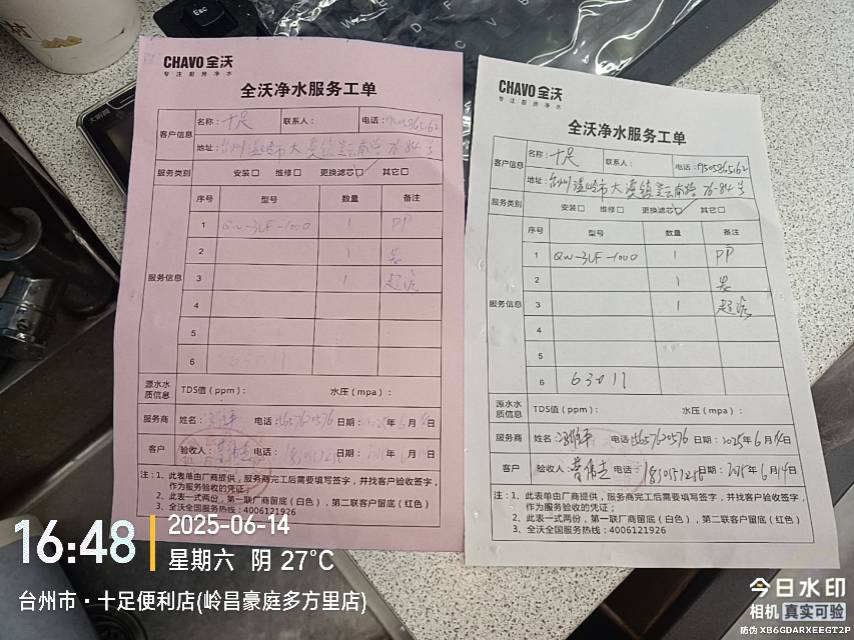 Esc
CHAVO 全沃
专注厨房净水
全沃净水服务工单
客户信息 名称：十足 联系人： 电话：
地址：台州温岭市大溪镇 76-84号
服务类别 安装□ 维修□ 更换滤芯□ 其它□
序号 型号 数量 备注
服务信息
1 QW-3UF-1000 1 PP
2 1 炭
3 1 超滤
4
5
6
源水水质信息 TDS值（ppm）： 水压（mpa）：
服务商 姓名： 电话： 日期：2025年6月14日
客户 验收人： 电话： 日期： 年6月 日
注：1、此表单由厂商提供，服务商完工后需要填写签字，并找客户验收签字，
作为服务验收的凭证；
2、此表一式两份，第一联厂商留底（白色），第二联客户留底（红色）
3、全沃全国服务热线：4006121926
CHAVO 全沃
专注厨房净水
全沃净水服务工单
客户信息 名称：十足 联系人： 电话：
地址：台州温岭市大溪镇 76-84号
服务类别 安装□ 维修□ 更换滤芯☑ 其它□
序号 型号 数量 备注
服务信息
1 QW-3UF-1000 1 PP
2 1 炭
3 1 超滤
4
5
6 63011
源水水质信息 TDS值（ppm）： 水压（mpa）：
服务商 姓名： 电话： 日期：2025年6月14日
客户 验收人： 电话： 日期：2025年6月14日
注：1、此表单由厂商提供，服务商完工后需要填写签字，并找客户验收签字，
作为服务验收的凭证；
2、此表一式两份，第一联厂商留底（白色），第二联客户留底（红色）
3、全沃全国服务热线：4006121926
16:48
2025-06-14
星期六 阴 27°C
台州市·十足便利店(岭昌豪庭多方里店)
今日水印
相机 真实可验
防伪 XB6GDARXEEGT2P